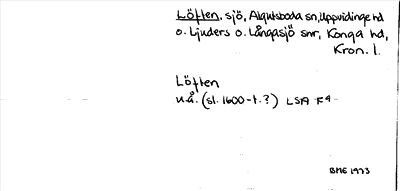 Löften, sjö, Algutsboda sn, Uppvidinge hd
o. Ljuders o. Långasjö snr, Konga hd,
Kron. l.
Löften
u.å. (sl. 1600-t.?) LSA F4
BME 1973